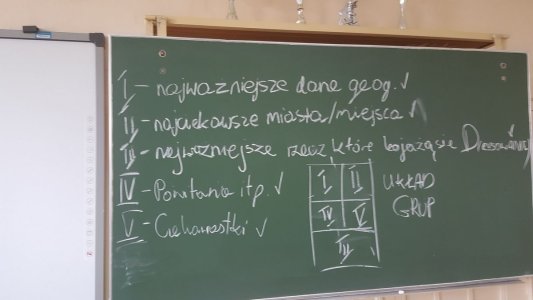 I - najwazniejsze dane geog. ✓
II - najciekawsze miasta/miejsca
III - najwazniejsze rzecz, które kojarzą się
IV - Powitania itp. ✓
V - Ciekawostki ✓
I II
IV V
III
UKŁAD
GRUP